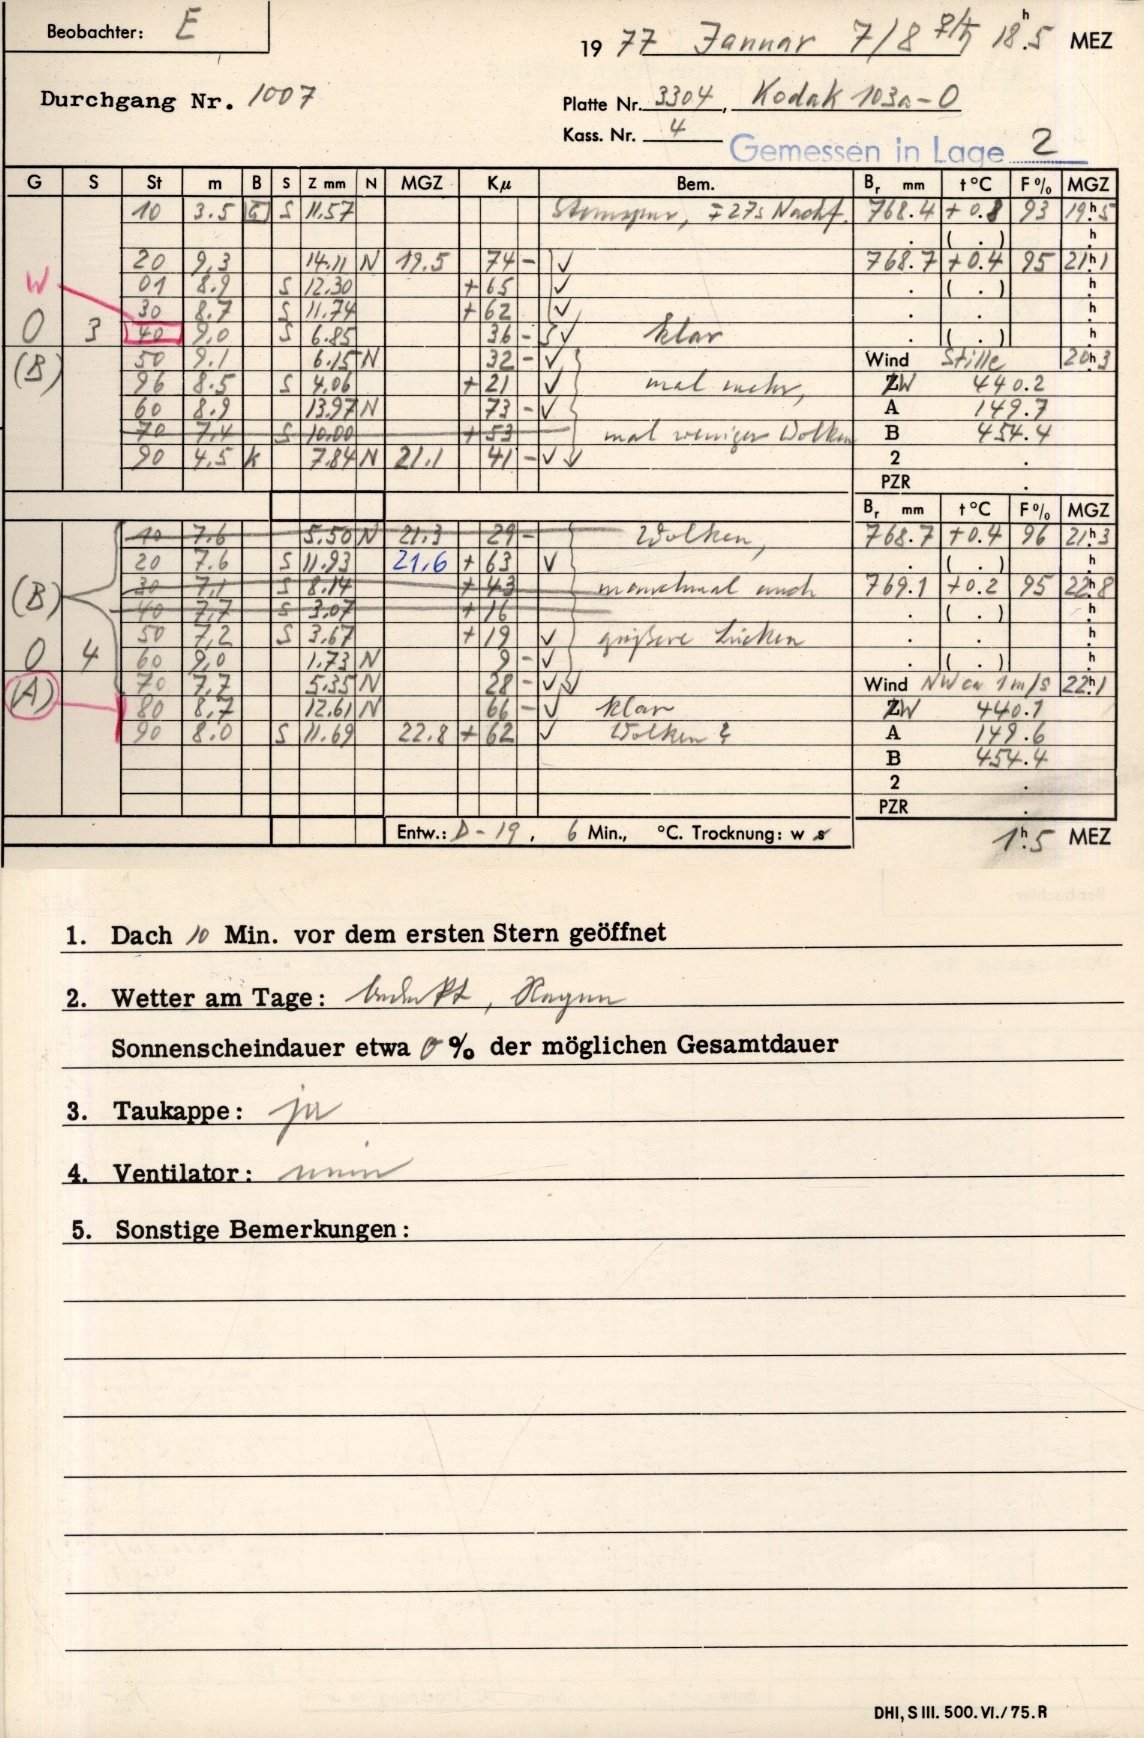 Beobachter: E
1977 Januar 7/8 18h.5 MEZ
Durchgang Nr. 1007
Platte Nr. 3304, Kodak 103a-O
Kass. Nr. 4
Gemessen in Lage 2
G S St m B S Z mm N MGZ Kμ Bem. Br mm t°C F% MGZ
10 3.5 S 11.57 Sternspur, ∓27s Nachf. 768.4 +0.8 93 19h.5
. ( . ) h.
20 9,3 14.11 N 19.5 74 - ✓ 768.7 +0.4 95 21h.1
W 01 8.9 S 12.30 +65 ✓ . ( . ) h.
30 8.7 S 11.74 +62 ✓ . . h.
O 3 40 9,0 S 6.85 36 - ✓ klar . ( . ) h.
(B) 50 9.1 6.15 N 32 - ✓ Wind Stille 20h.3
96 8.5 S 4.06 +21 ✓ mal mehr, ZW 440.2
60 8.9 13.97 N 73 - ✓ A 149.7
70 7,4 S 10.00 +53 mal weniger Wolken B 454.4
90 4.5 k 7.84 N 21.1 41 - ✓ 2 .
PZR .
Br mm t°C F% MGZ
10 7.6 5.50 N 21.3 29 - Wolken, 768.7 +0.4 96 21h.3
20 7.6 S 11.93 21.6 +63 ✓ . ( . ) h.
(B) 30 7,1 S 8.14 +43 manchmal auch 769.1 +0.2 95 22h.8
40 7,7 S 3.07 +16 . ( . ) h.
50 7,2 S 3.67 +19 ✓ größere Lücken . . h.
O 4 60 9,0 1.73 N 9 - ✓ . ( . ) h.
(A) 70 7,7 5.35 N 28 - ✓ Wind NW ca 1m/s 22h.1
80 8,7 12.61 N 66 - ✓ klar ZW 440.1
90 8.0 S 11.69 22.8 +62 ✓ Wolken A 149.6
B 454.4
2 .
PZR .
Entw.: D-19, 6 Min., °C. Trocknung: w s 1h.5 MEZ
1. Dach 10 Min. vor dem ersten Stern geöffnet
2. Wetter am Tage: bedeckt, Regen
Sonnenscheindauer etwa 0 % der möglichen Gesamtdauer
3. Taukappe: ja
4. Ventilator: nein
5. Sonstige Bemerkungen:
DHI, S III. 500. VI./75. R